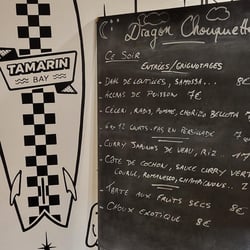 TAMARIN
BAY
Dragon Chouquette
CE SOIR
ENTRÉES/GRIGNOTAGES
- DAHL DE LENTILLES, SAMOSSA...
- ACCRAS DE POISSON 7€
- CÉLERI, RADIS, POMME, CHORIZO BELLOTA
PERSILLADE
- CURRY DE VEAU, RIZ
- CÔTE DE COCHON, SAUCE CURRY VERT
COURGE, ROMANESCO, CHAMPIGNONS..
- TARTE AUX FRUITS SECS 8€
- CHOUX EXOTIQUE 8€